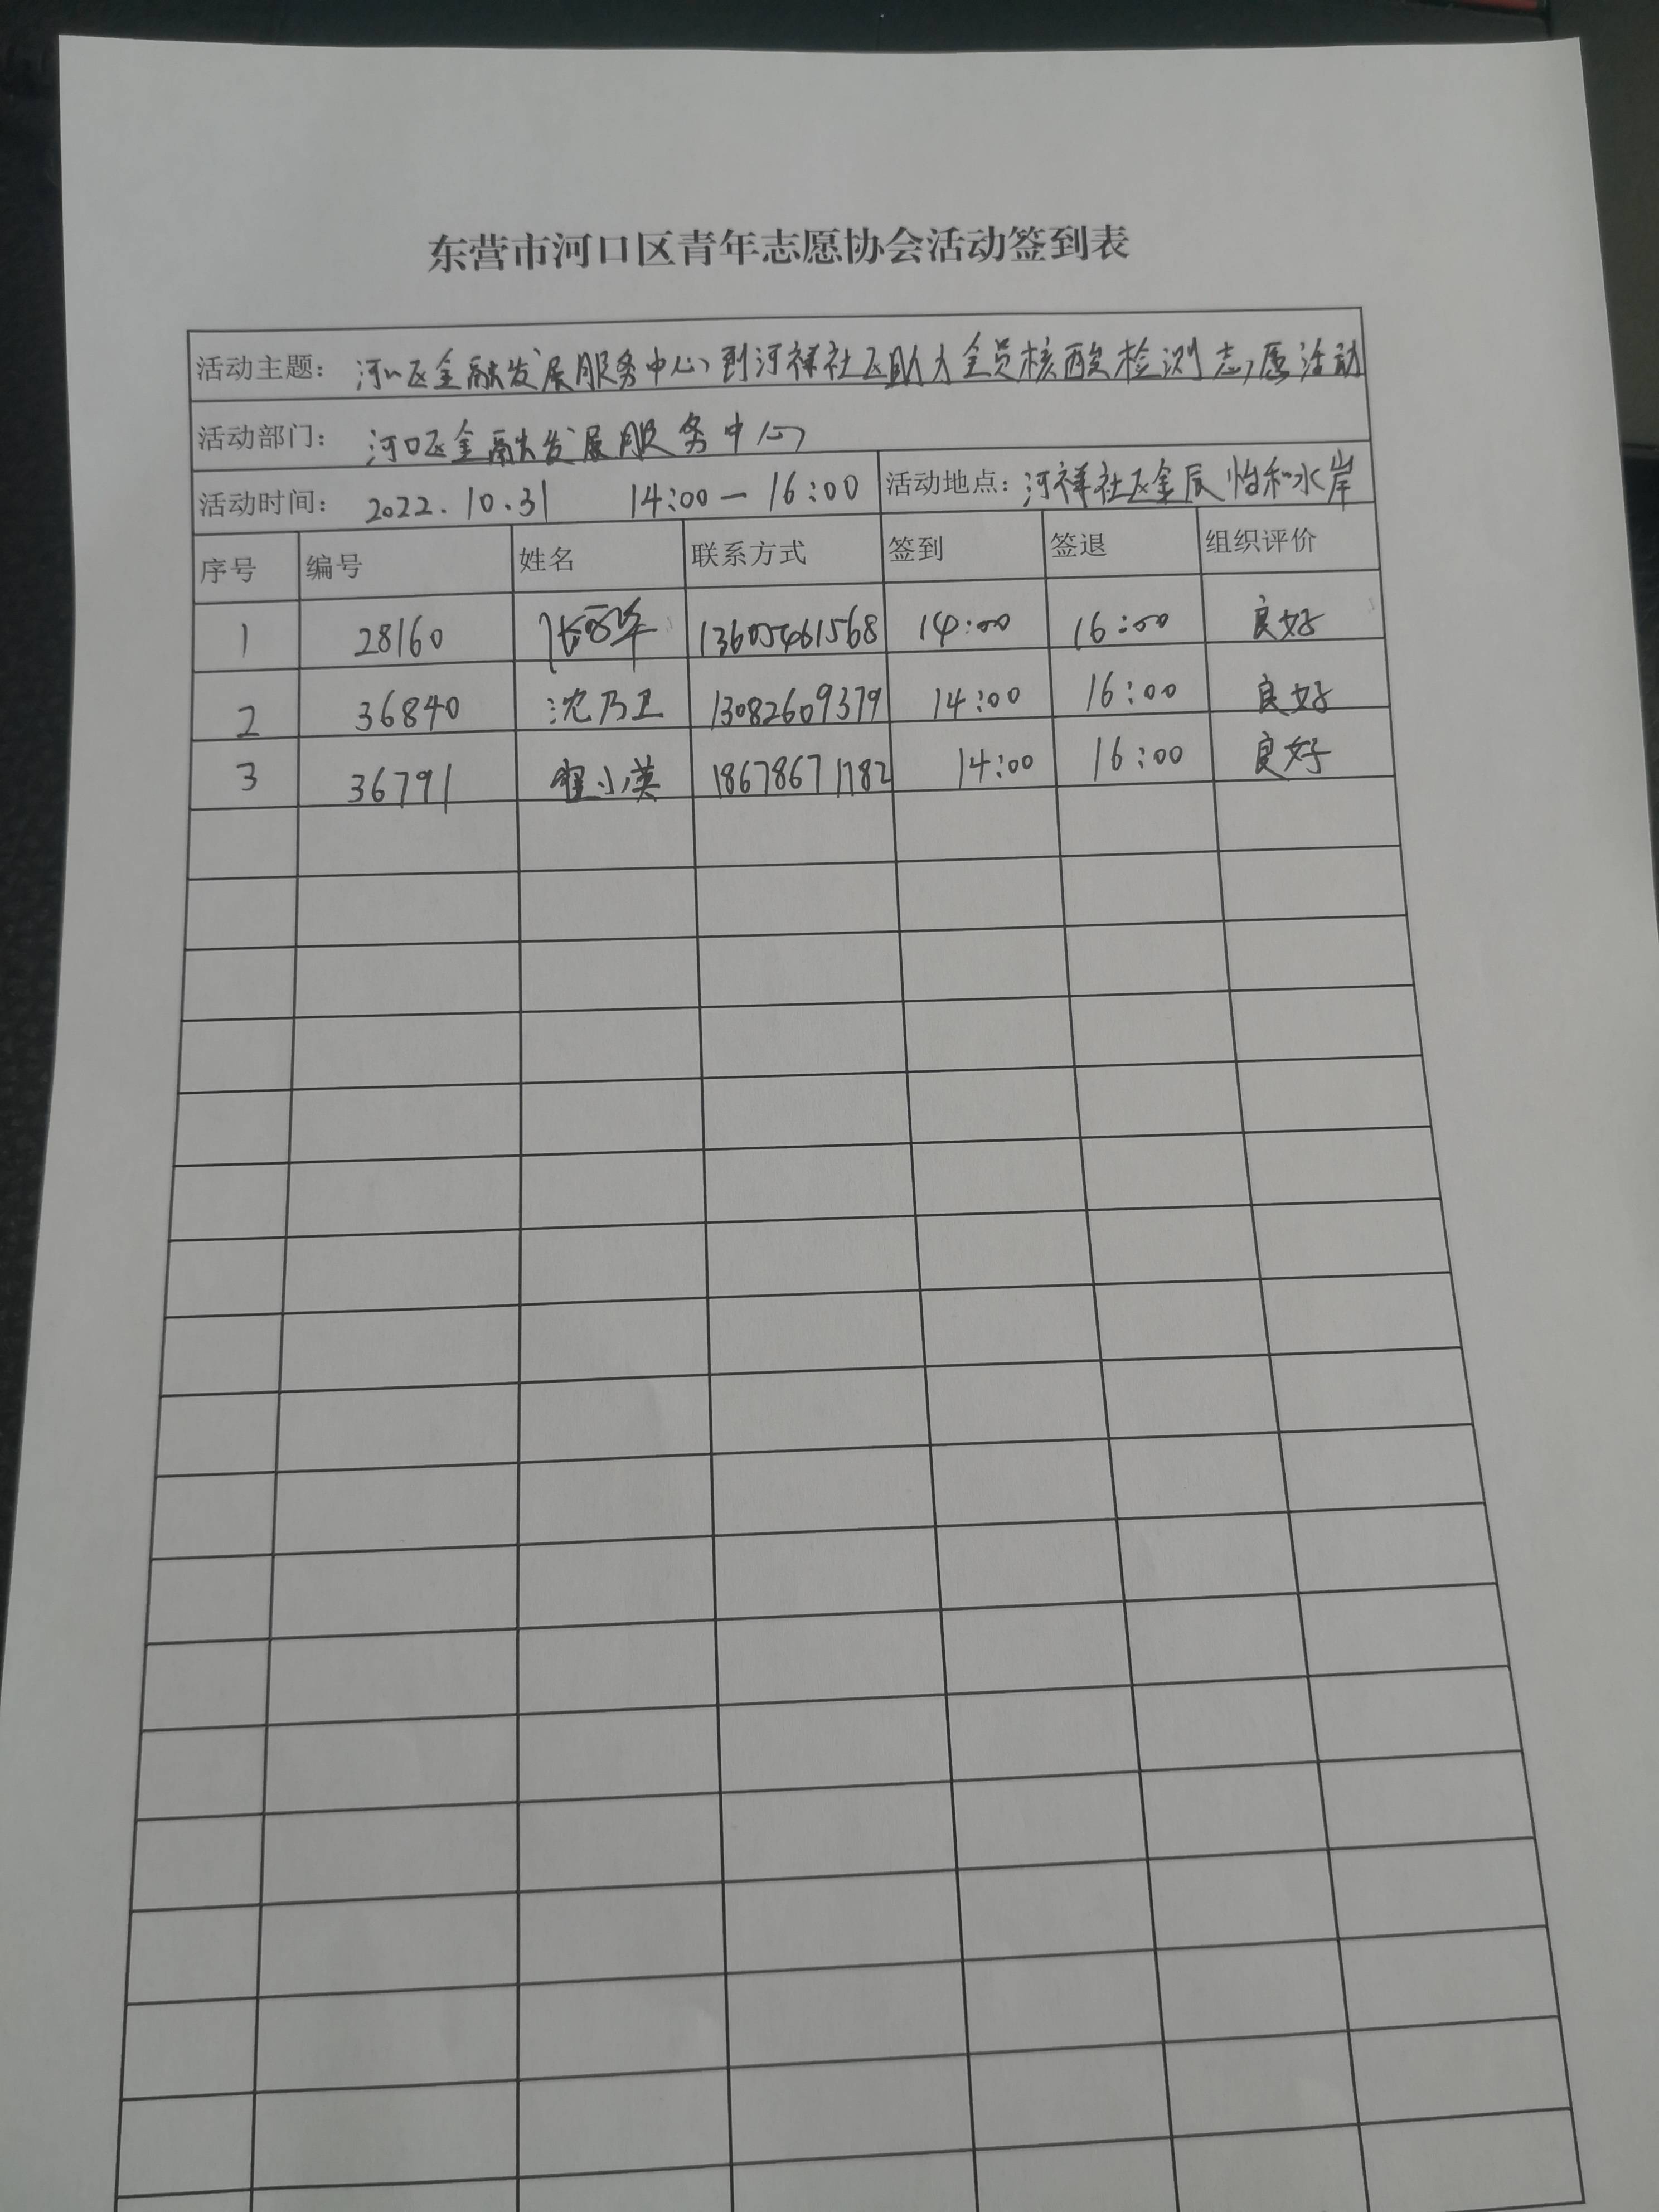 东营市河口区青年志愿协会活动签到表
活动主题： 河口区金融发展服务中心到河祥社区助力全员核酸检测志愿活动
活动部门： 河口区金融发展服务中心
活动时间： 2022.10.31 14:00—16:00 活动地点：河祥社区金辰怡和水岸
序号 编号 姓名 联系方式 签到 签退 组织评价
1 28160 13605461568 14:00 16:00 良好
2 36840 沈乃卫 13082609379 14:00 16:00 良好
3 36791 翟小英 18678671782 14:00 16:00 良好